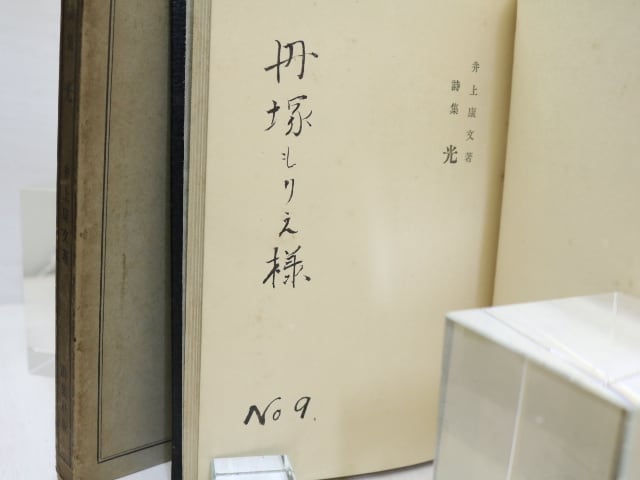 井上康文著
詩集 光
冊塚もりえ様
No 9.